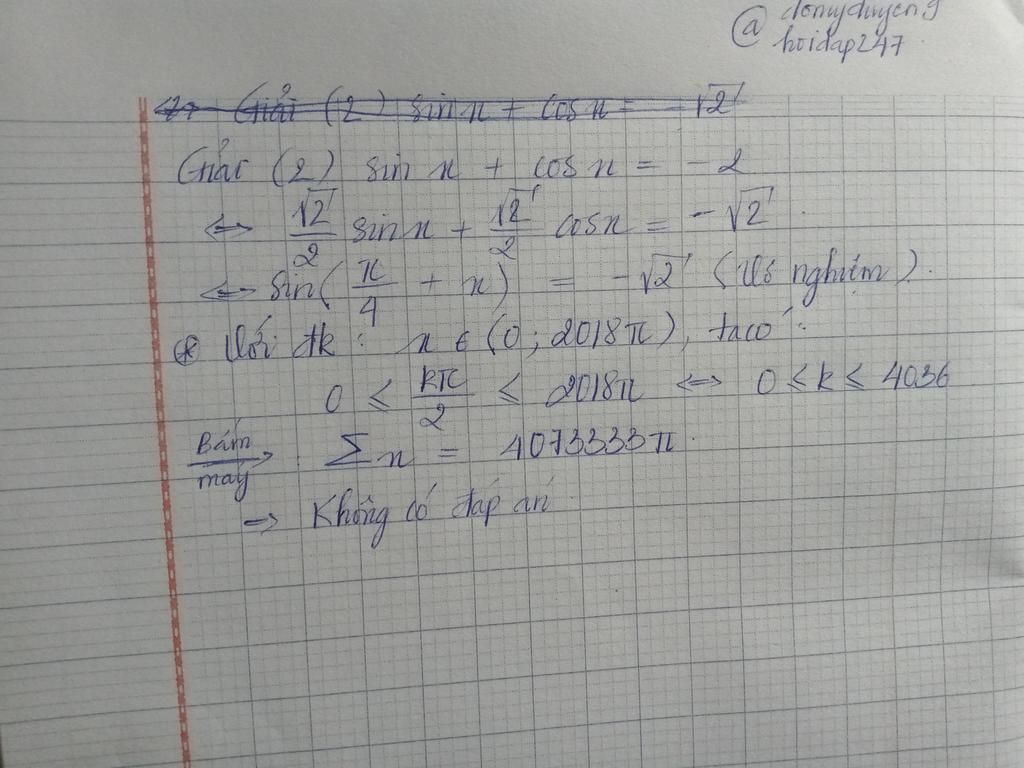 @ donyduyeng
hoidap247
Giải (2) sin x + cos x = -√2
Giải (2) sin x + cos x = -2
⇔ √2/2 sin x + √2/2 cos x = -√2.
⇔ sin(π/4 + x) = -√2 (Vô nghiệm).
⊛ Với đk: x ∈ (0; 2018π), ta có:
0 ≤ kπ/2 ≤ 2018π ⇔ 0 ≤ k ≤ 4036
Bấm máy → Σx = 4073333π.
⇒ Không có đáp án